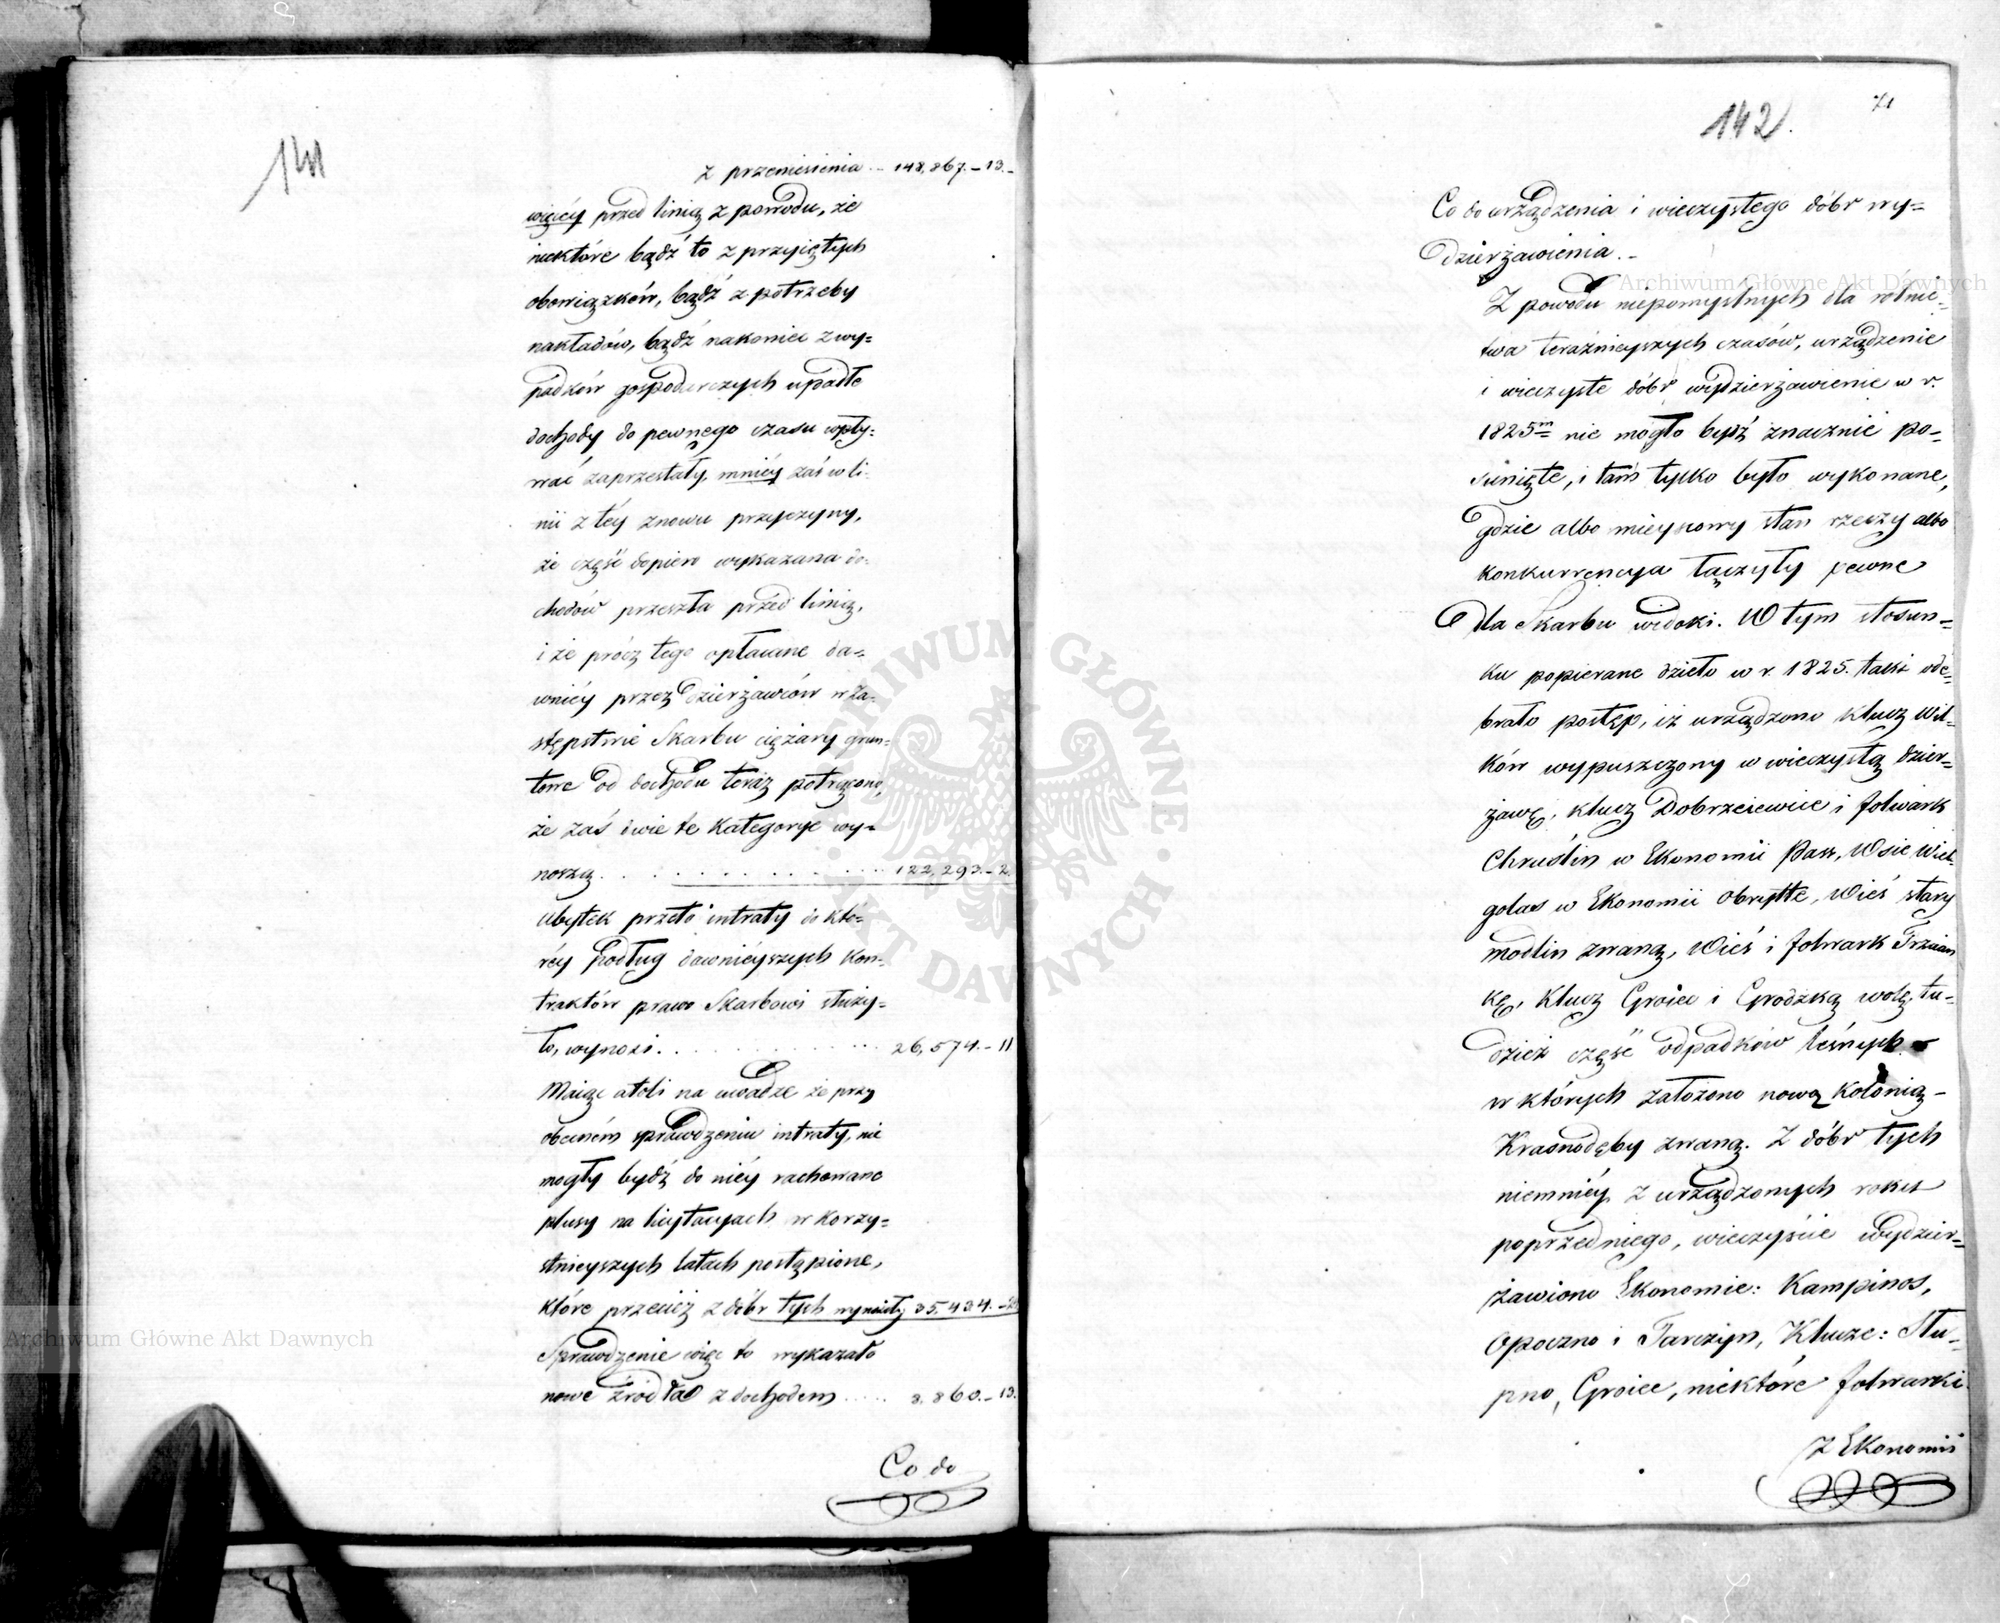 141
z przeniesienia .. 148,867.-13.-
więcéy przed linią z powodu, że
niektóre bądź to z przyiętych
obowiązków, bądź z potrzeby
nakładów, bądź nakoniec z wy=
padków gospodarczych upadłe
dochody do pewnego czasu wpły=
wać zaprzestały, mniéy zaś w li-
nii z téy znowu przyczyny,
że część dopiero wykazana do-
chodów przeszła przed linią,
i że prócz tego opłacane da=
wniéy przez dzierżawców w za-
stępstwie Skarbu ciężary grun=
towe od dochodu teraz potrącono,
że zaś dwie te kategorye wy=
noszą . . . . . . . . . . . . 122,293.-2.
Ubytek przeto intraty do któ=
réy podług dawnieyszych kon=
traktów prawo Skarbowi służy=
ło, wynosi . . . . . . . . . . 26,574.-11
Maiąc atoli na uwadze że przy
obecném sprawdzeniu intraty, nie
mogły bydź do niéy rachowane
plusy na licytacyach w korzy=
stnieyszych latach postąpione,
które przecież z dóbr tych wynosiły 35,434.-
Sprawdzenie więc to wykazało
nowe źródła z dochodem ..... 8,860.-13.
Co do
142.
71
Co do urządzenia i wieczystego dóbr wy=
dzierżawienia.-
Z powodu niepomyślnych dla rolnic=
twa teraźnieyszych czasów, urządzenie
i wieczyste dóbr wydzierżawienie w r.
1825m nie mogło bydź znacznie po=
sunięte, i tam tylko było wykonane,
gdzie albo mieyscowy stan rzeczy albo
konkurrencya łączyły pewne
dla Skarbu widoki. W tym stosun=
ku popierane dzieło w r. 1825. taki ode=
brało postęp, iż urządzono klucz Wil=
ków wypuszczony w wieczystą dzier=
żawę, klucz Dobrzeiewice i folwark
Chruślin w Ekonomii Pass, Wsie Wiel=
golas w Ekonomii Obrytte, Wieś stary
modlin zwaną, Wieś i folwark Trzcian
kę, Klucz Groiec i Grodzką wolę, tu=
dzież część odpadków leśnych
w których założono nową kolonią=
Krasnodęby zwaną. Z dóbr tych
niemniéy z urządzonych roku
poprzedniego, wieczyście wydzier=
żawiono Ekonomie: Kampinos,
Opoczno i Tarczyn, Klucze: Słu=
pno, Groiec, niektóre folwarki
z Ekonomii
Archiwum Główne Akt Dawnych
Archiwum Główne Akt Dawnych
ARCHIWUM GŁÓWNE · AKT DAWNYCH ·